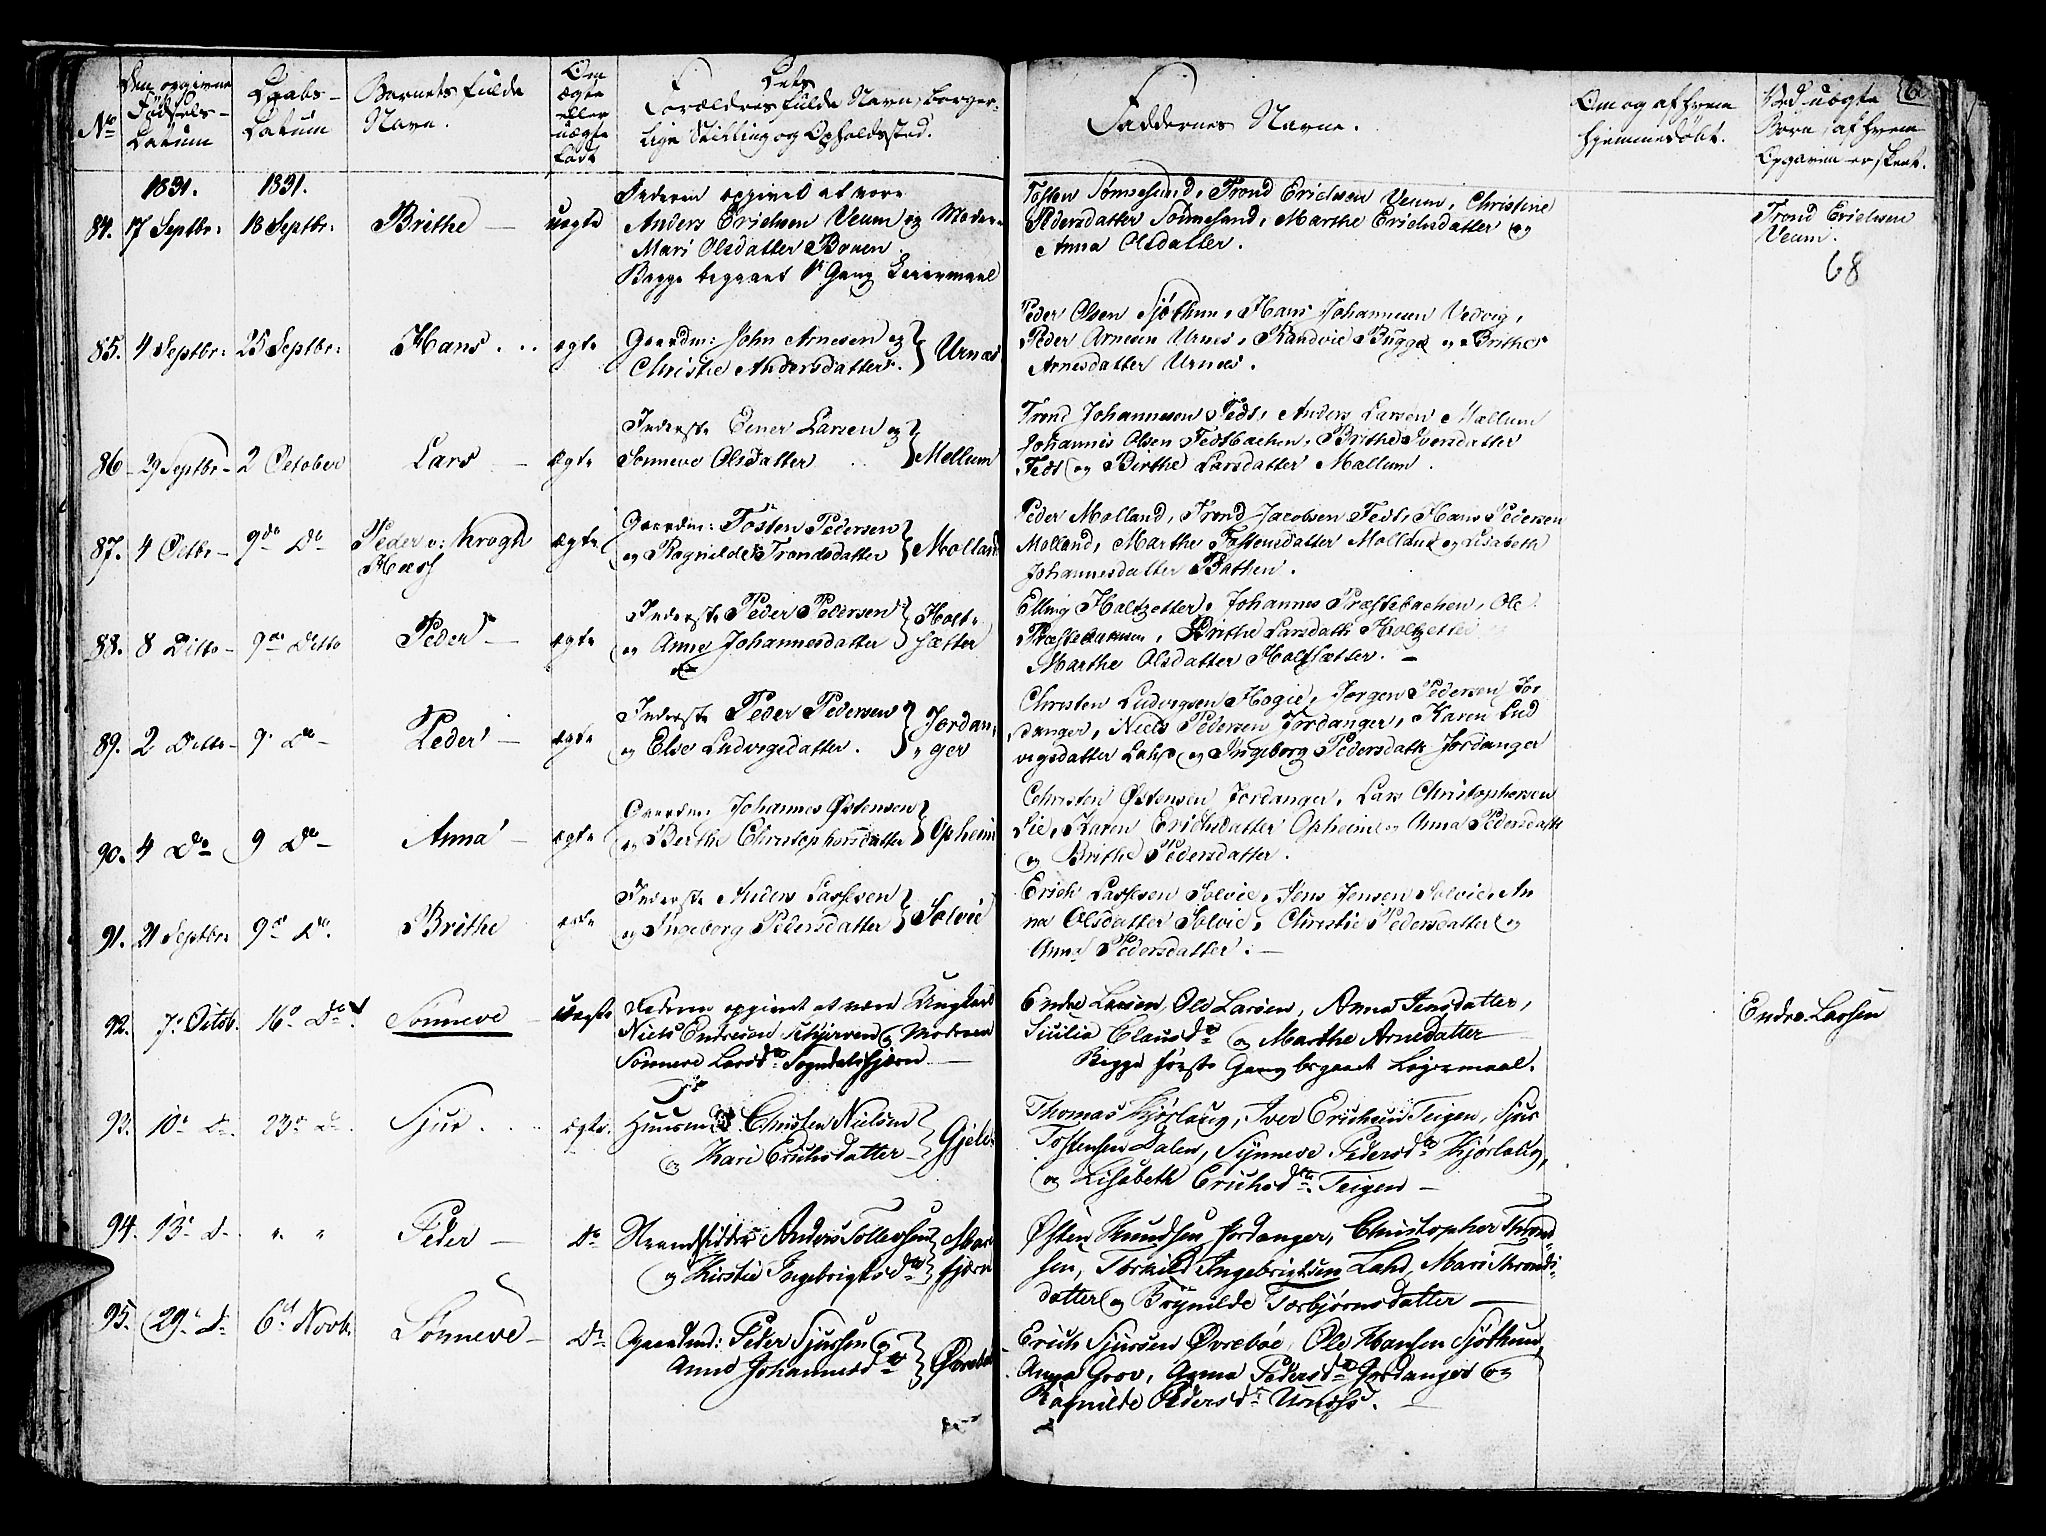 No
Den opgivne
Fødsels-
Datum
Daabs-
Datum
Barnets fulde
Navn.
Om
ægte
eller
uægte
født
Dets
Forældres fulde Navn, borger-
lige Stilling og Opholdssted.
Faddernes Navne.
Om og af hvem
hjemmedøbt.
Ved uægte
Børn, af hvem
Opgaven er skeet.
1831. 1831.
84. 17 Septbr: 18 Septbr: Brithe — uegte
Faderen opgivet at være
Anders Erichsen Veum og Moder-
Mari Olsdatter Bouen
Begge begaaet 1ste Gang Leiermaal
Tosten Sømnesand, Trond Erichsen Veum, Christine
Pedersdatter Sømnesand, Marthe Erichsdatter og
Anna Olsdatter.
Trond Erichsen
Veum.
68
85. 4 Septbr: 25 Septbr: Hans . . ægte
Gaardm: John Arnesen og
Christie Andersdatter. } Urnæs
Peder Olsen Sjøthun, Hans Johannesen Vedvig,
Peder Arnesen Urnes, Randvie Bugge og Brithe
Arnesdatter Urnæs.
86 29 Septbr 2 October Lars — ægte
Inderste Einer Larsen og
Sønneve Olsdatter } Mellum
Trond Johannesen Fedt, Anders Larsen Mællum
Johannis Olsen Fedtbachen, Brithe Iversdatter
Fedt og Birthe Larsdatter Mællum.
87. 4 Octbr 9de Do Peder v: Krogh
Mæss ægte
Gaardm: Tosten Pedersen
og Ragnilde Trondsdatter } Molland
Peder Molland, Trond Jacobsen Fedt, Hans Pedersen
Molland, Marthe Tostensdatter Molland og Lisabeth
Johannesdatter Bathen.
88. 8 Ditto 9de Ditto Peder — ægte
Inderste Peder Pedersen
og Anne Johannesdatter } Holt-
sætter
Elling Holtzetter, Johannes Præstebachen, Ole
Præstebachen, Brithe Larsdatt. Holtzetter
Marthe Olsdatter Holtsætter.
89. 2 Ditto 9 Do Peder — ægte
Inderste Peder Pedersen
og Else Ludvigsdatter. } Jordan-
ger
Christen Ludvigsen Hogie, Jørgen Pedersen Jor
danger, Niels Pedersen Jordanger, Karen Lud
vigsdatter Lahd og Ingeborg Pedersdatt. Jordanger
90. 4 Do 9 Do Anna — ægte
Gaardm: Johannes Østensen
og Berthe Christophersdatter } Opheim
Christen Østensen Jordanger, Lars Christophersen
Lie, Karen Erichsdatter Opheim og Anna Pedersdatt
og Brithe Pedersdatter.
91. 21 Septbr 9de Do. Brithe ægte
Inderste Anders Lassesen
og Ingeborg Pedersdatter } Solvie
Erich Lassesen Solvie, Jens Jensen Solvie, An
na Olsdatter Solvie, Christie Pedersdatter og
Anna Pedersdatter.
92. 7de Octob. 16de Do Sönneve — uægte
Faderen opgivet at være Ungkarl
Niels Endresen Schjerven og Moderen
Sönneve Larsdtr Sogndalsfjæren
Endre Larsen, Ole Larsen, Anna Jensdatter,
Sicilia Clausdr og Marthe Arnedatter
Begge første Gang begaaet Lejermaal.
Endre Larsen
93. 10de Do. 23de Do. Sjur . . ægte
Huusmd Christen Nielsen
og Kari Erichsdatter } Gjele
Thomas Kjørlaug, Iver Erichsen Teigen, Sjur
Tostensen Dalen, Synneve Pedersdr Kjørlaug,
og Lisabeth Erichsdtr Teigen —
94. 13de Do „ „ Peder — Do
Strandsidder Anders Tollevsen
og Kirstie Ingebrigtsdr } Mar
fjæren
Østen Knudsen Jordanger, Christopher Thrond-
sen, Torkild Ingebrigtsen Lahd, Mari Thronds-
datter og Brynilde Torbjørnsdatter —
95. 29de Do 6te Novb. Sönneve — Do
Gaardmd: Peder Sjursen og
Anne Johannesdr } Øvrebøe
Erich Sjursen Øvrebøe, Ole Hansen Sjøthun,
Anna Grov, Anna Pedersdr Jordanger og
Ragnilde Pedersdr Urnæss.